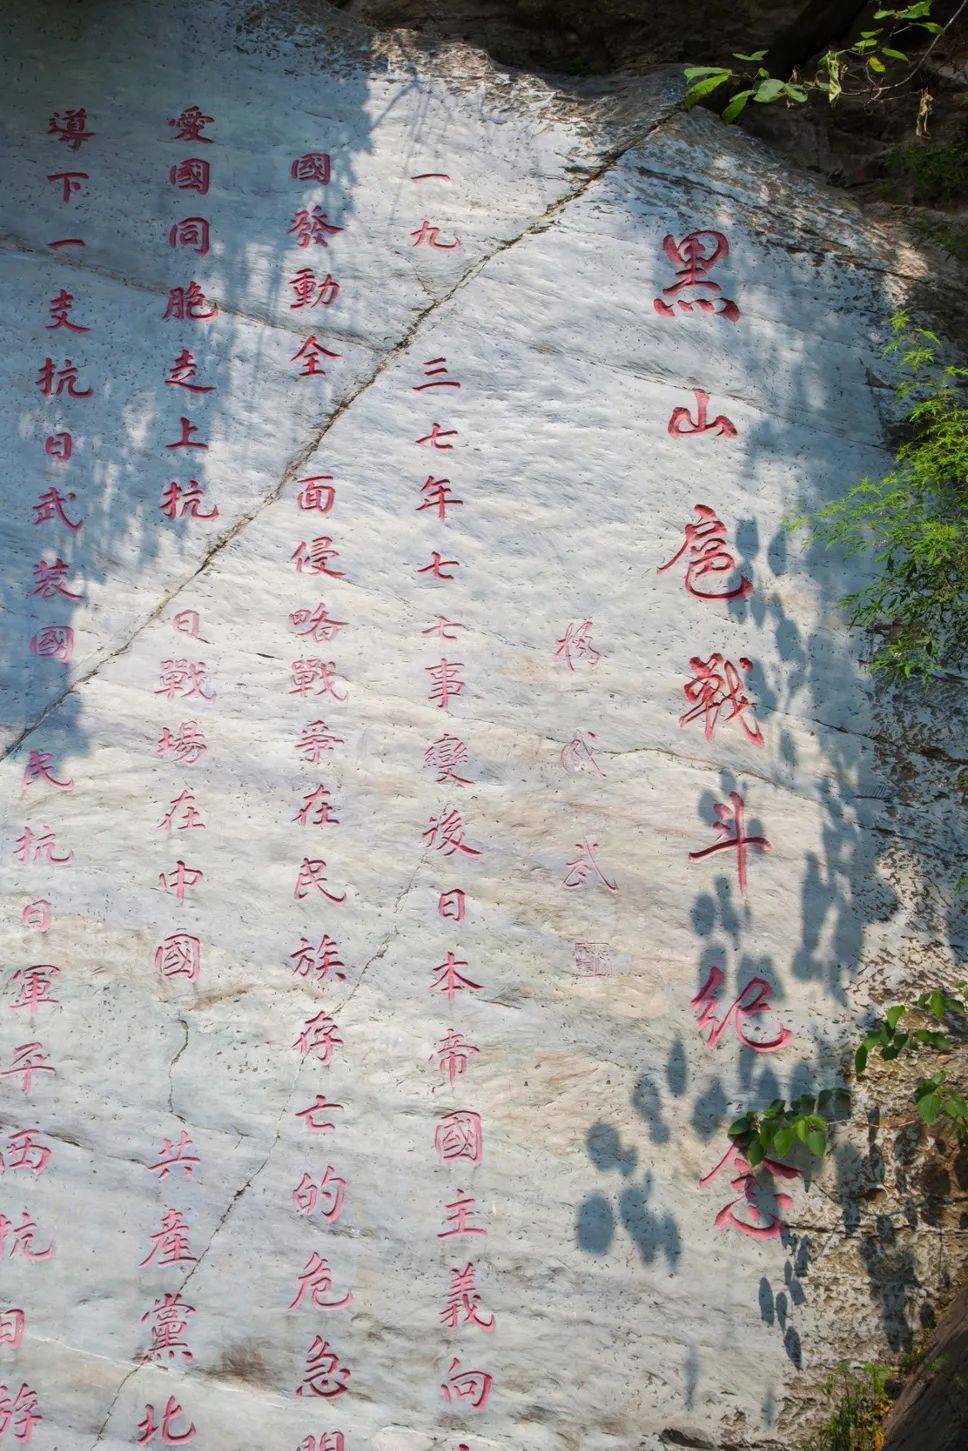 黑山扈战斗纪念
杨成武
一九三七年七七事變後日本帝國主義向
國發動全面侵略戰爭在民族存亡的危急
愛國同胞走上抗日戰場在中國共產黨北
導下一支抗日武装國民抗日軍平西抗日游